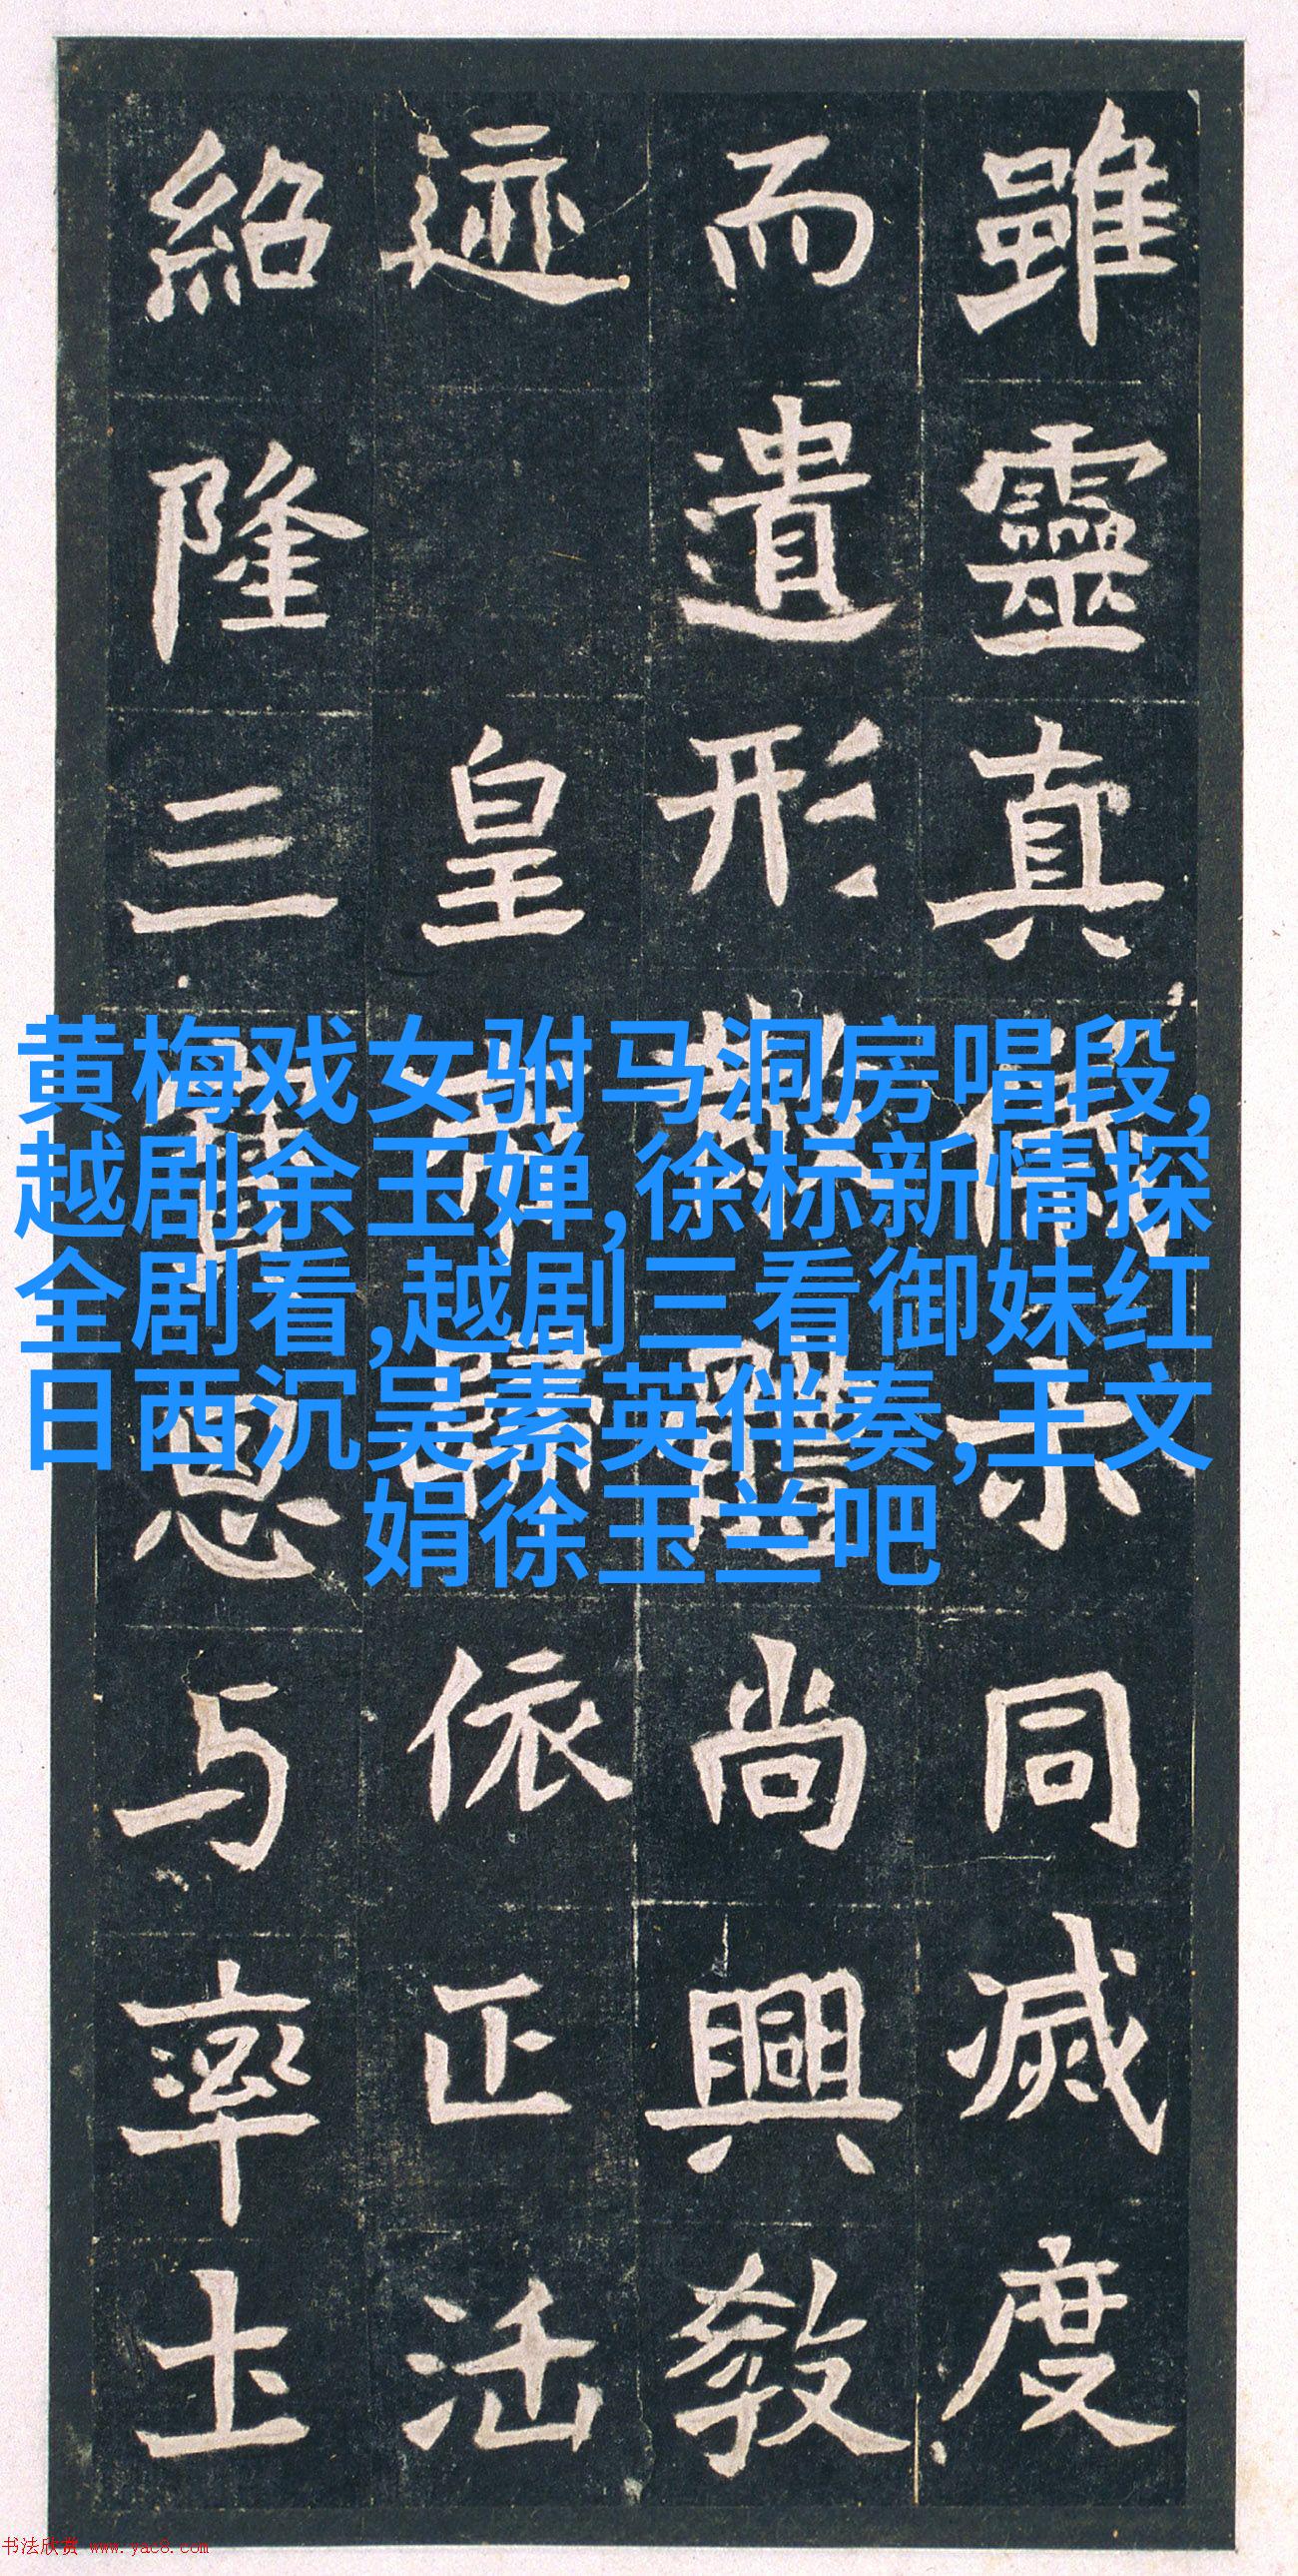 雖靈真示同滅度
而遺形體尚興教
迹 皇帝歸依正法
紹隆三寶思与率土
黄梅戏女驸马洞房唱段,
越剧余玉婵,徐标新情探
全剧看,越剧三看御妹红
日西沉吴素英伴奏,王文
娟徐玉兰吧
书法欣赏 www.yac8.com